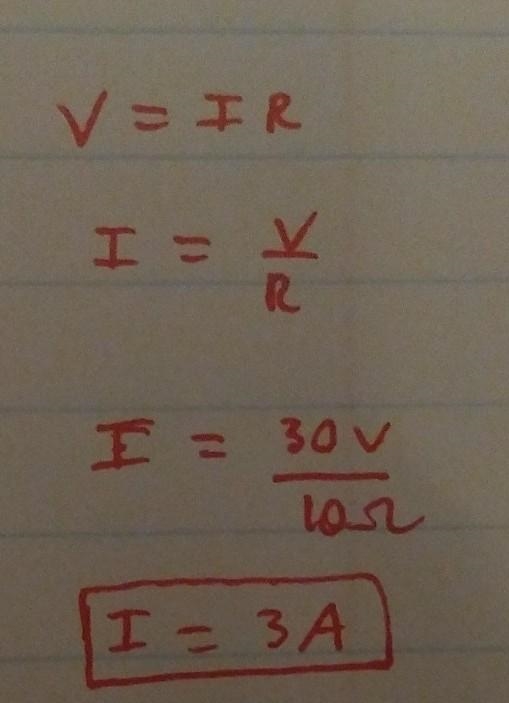 V = IR
I = V/R
I = 30V/10Ω
I = 3A